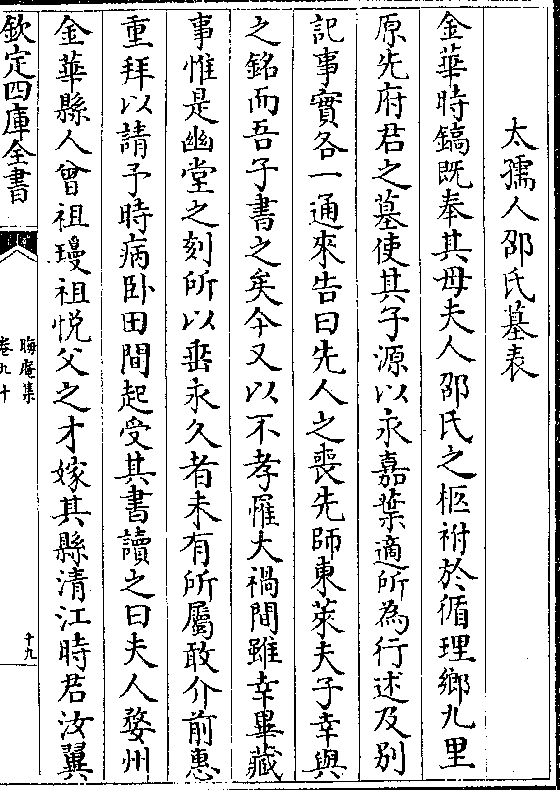 太孺人邵氏墓表
金華時鎬既奉其母夫人邵氏之柩祔於循理鄉九里
原先府君之墓使其子源以永嘉葉適所為行述及别
記事實各一通來告曰先人之喪先師東萊夫子幸與
之銘而吾子書之矣今又以不孝罹大禍間雖幸畢藏
事惟是幽堂之刻所以垂永久者未有所屬敢介前惠
重拜以請予時病卧田間起受其書讀之曰夫人婺州
金華縣人曾祖瑴祖悦父之才嫁其縣清江時君汝翼
欽定四庫全書
晦庵集
卷九十
十九